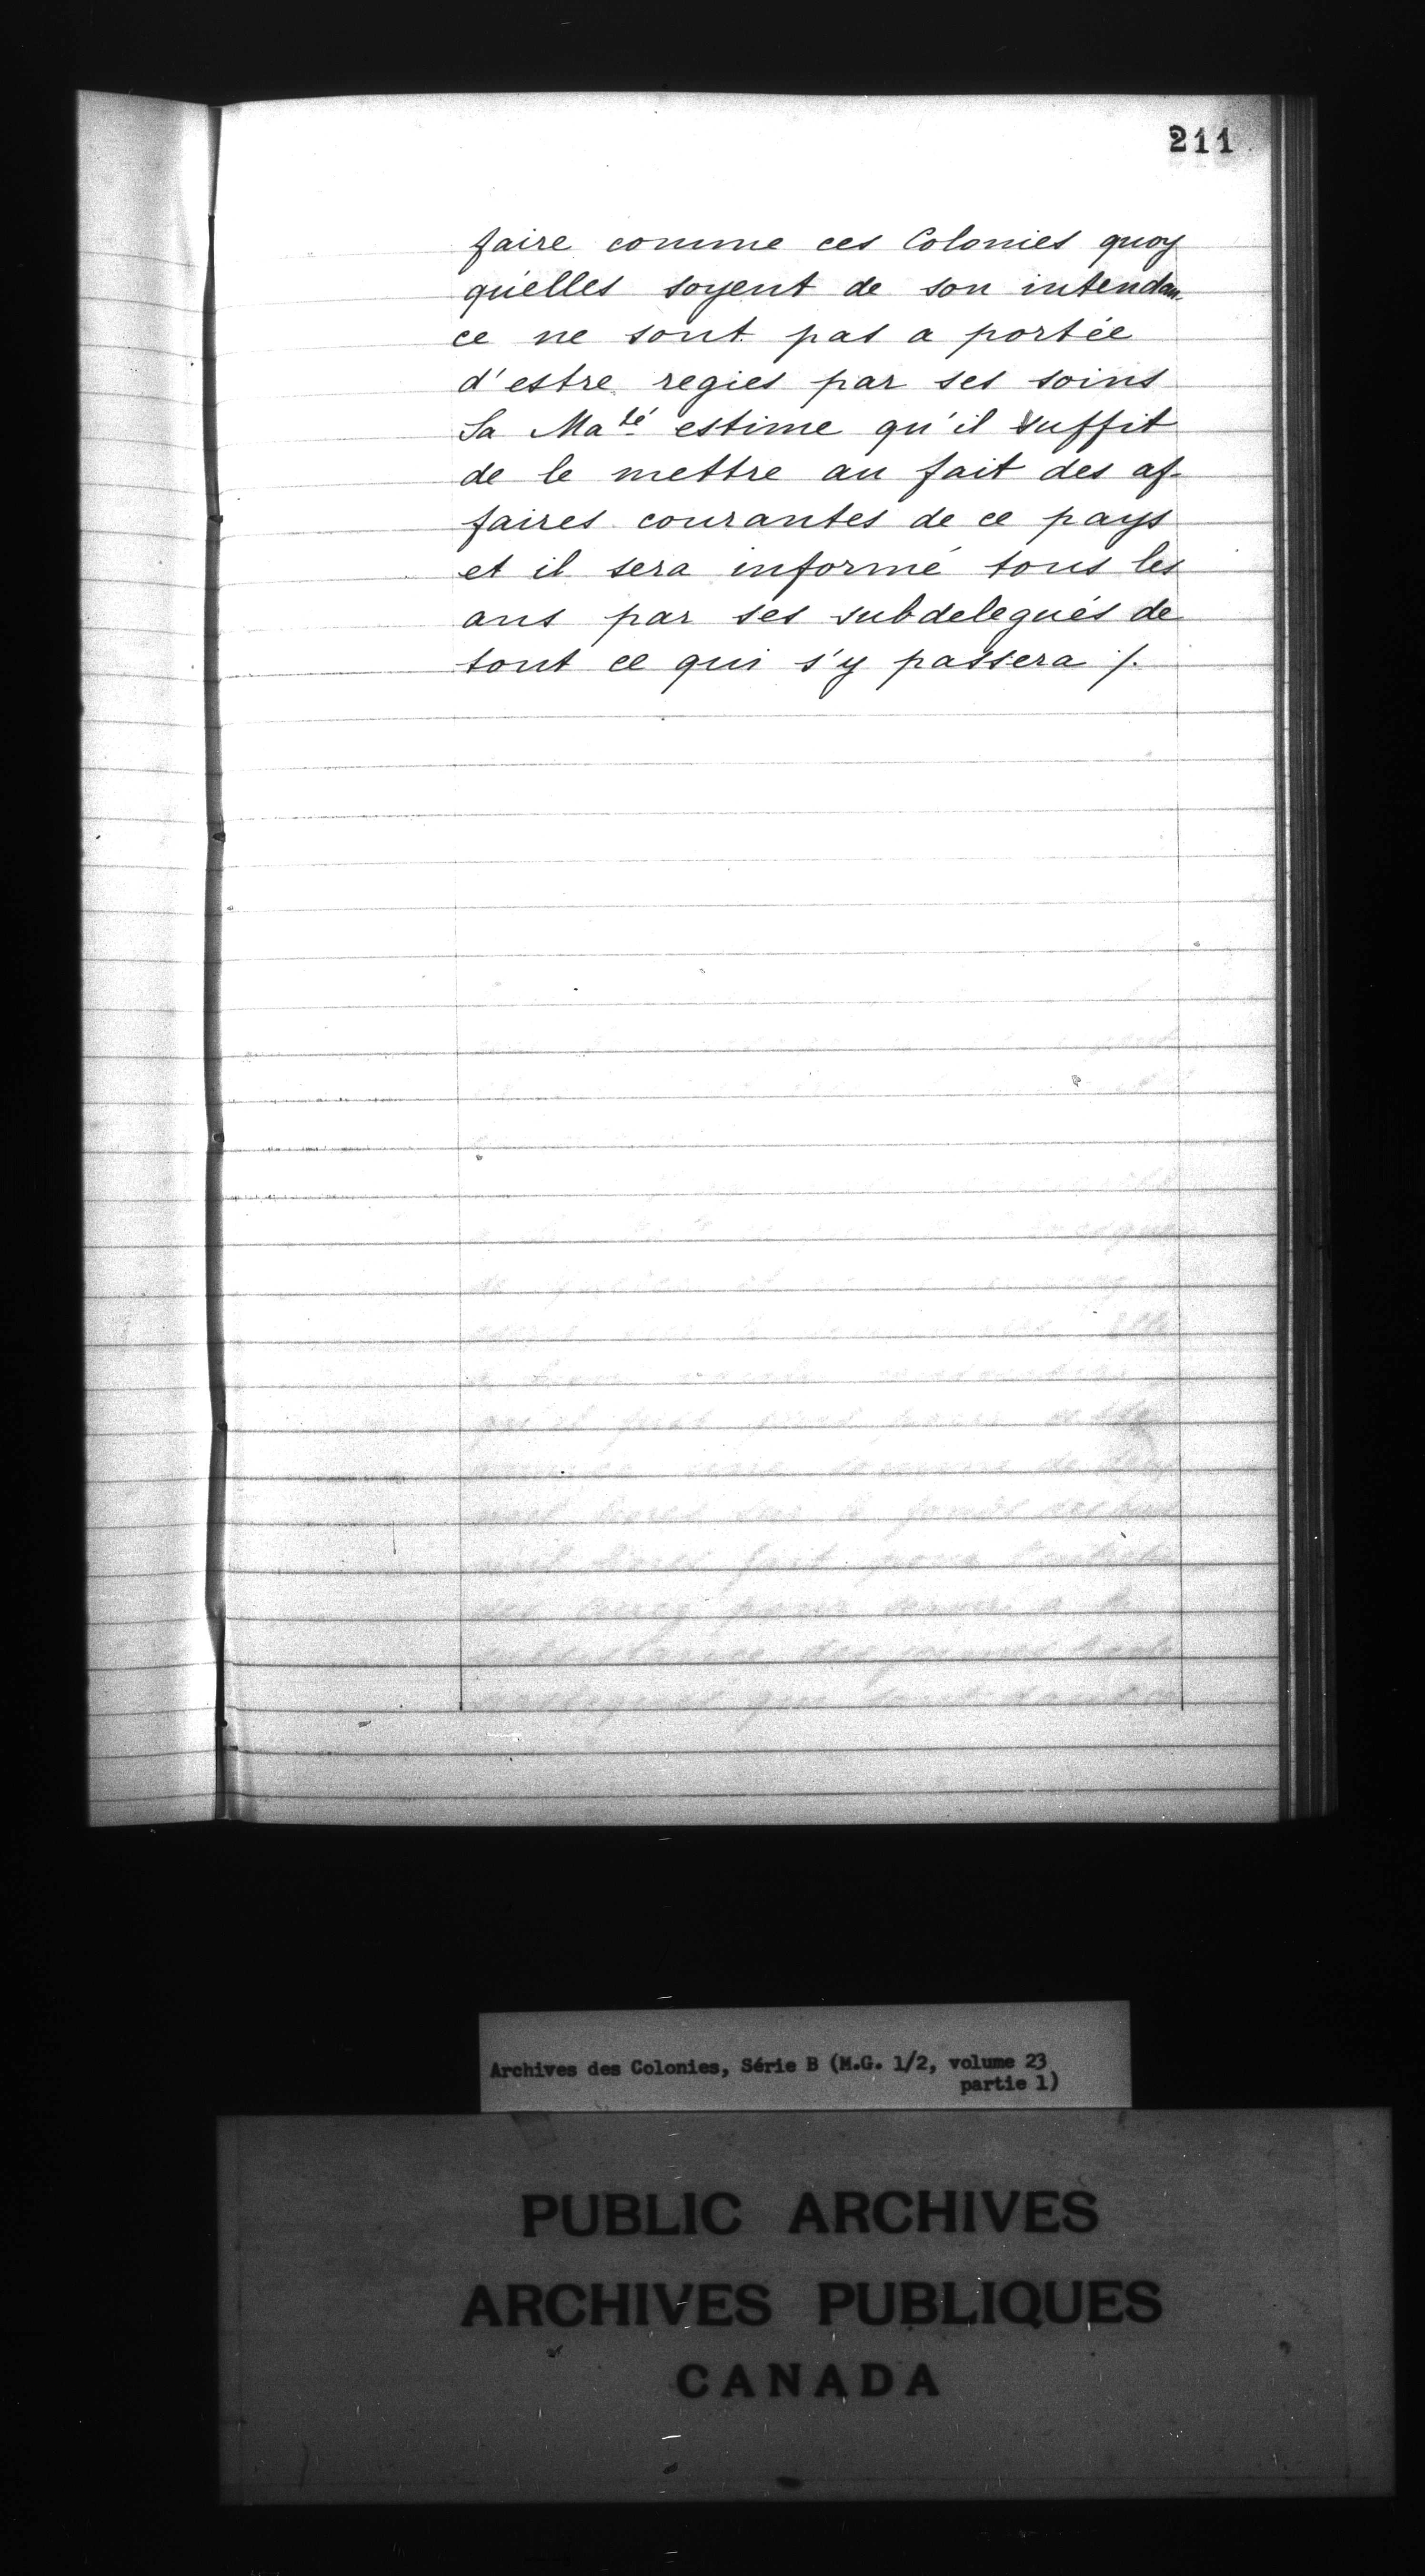 211
faire comme ces Colonies quoy
qu'elles soyent de son intendan-
ce ne sont pas a portée
d'estre regies par ses soins
Sa Ma^té estime qu'il suffit
de le mettre au fait des af-
faires courantes de ce pays
et il sera informé tous les
ans par ses subdelegués de
tout ce qui s'y passera ⁒
Archives des Colonies, Série B (M.G. 1/2, volume 23
partie 1)
PUBLIC ARCHIVES
ARCHIVES PUBLIQUES
CANADA